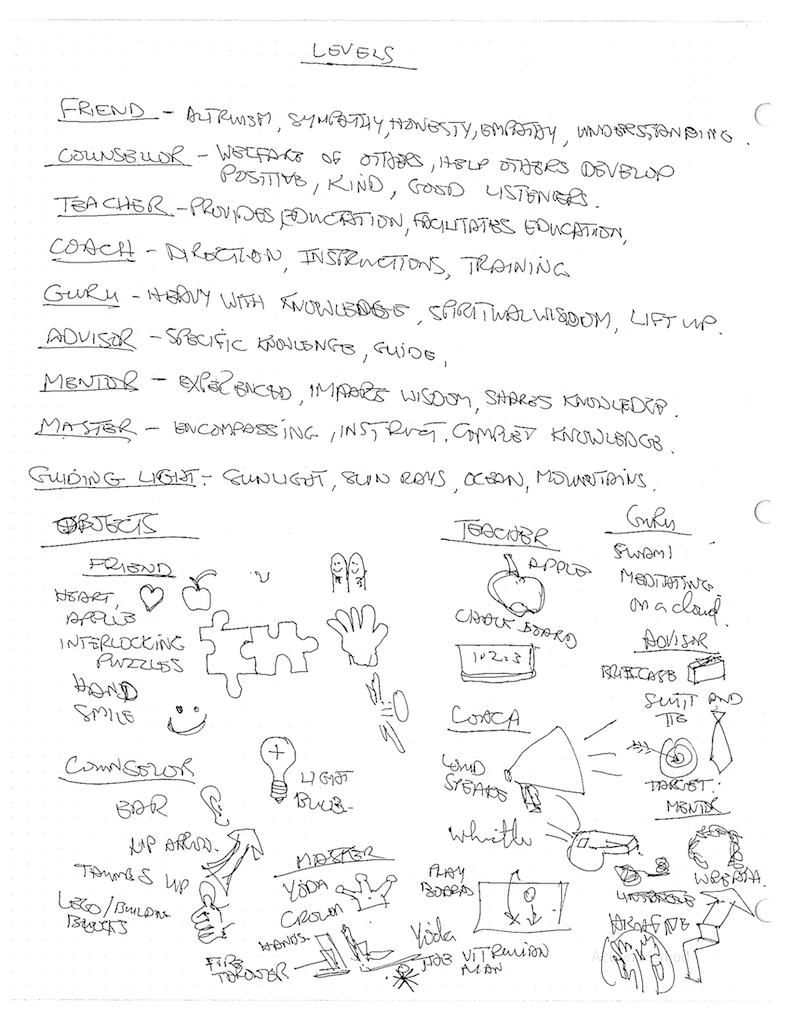 LEVELS
FRIEND - ALTRUISM, SYMPATHY, HONESTY, EMPATHY, UNDERSSTANDING.
COUNSELLOR - WELFARE OF OTHERS, HELP OTHERS DEVELOP
POSITIVE, KIND, GOOD LISTENERS.
TEACHER - PROVIDES EDUCATION, FACILITATES EDUCATION,
COACH - DIRECTION, INSTRUCTIONS, TRAINING
GURU - HEAVY WITH KNOWLEDGE, SPIRITUAL WISDOM, LIFT UP.
ADVISOR - SPECIFIC KNOWLEDGE, GUIDE,
MENTOR - EXPERIENCED, IMPARTS WISDOM, SHARES KNOWLEDGE.
MASTER - ENCOMPASSING, INSTRUCT, COMPLET KNOWLEDGE.
GUIDING LIGHT - SUNLIGHT, SUN RAYS, OCEAN, MOUNTAINS.
OBJECTS
FRIEND
HEART,
APPLE
INTERLOCKING
PUZZLES
HAND
SMILE
COUNSELOR
EAR
UP ARROW.
THUMBS UP
LEGO/BUILDING
BLOCKS
LIGHT
BULB
MASTER
YODA
CROWN
HANDS.
FIRE
THROWER
Yoda
VITRUVIAN
MAN
TEACHER
APPLE
CHALK BOARD
1+2=3
COACH
LOUD
SPEAKER
Whistle
PLAY
BOARD
GURU
SWAMI
MEDITATING
on a cloud.
ADVISOR
BRIEFCASE
SUIT AND
TIE
TARGET.
MENTOR
WREATH.